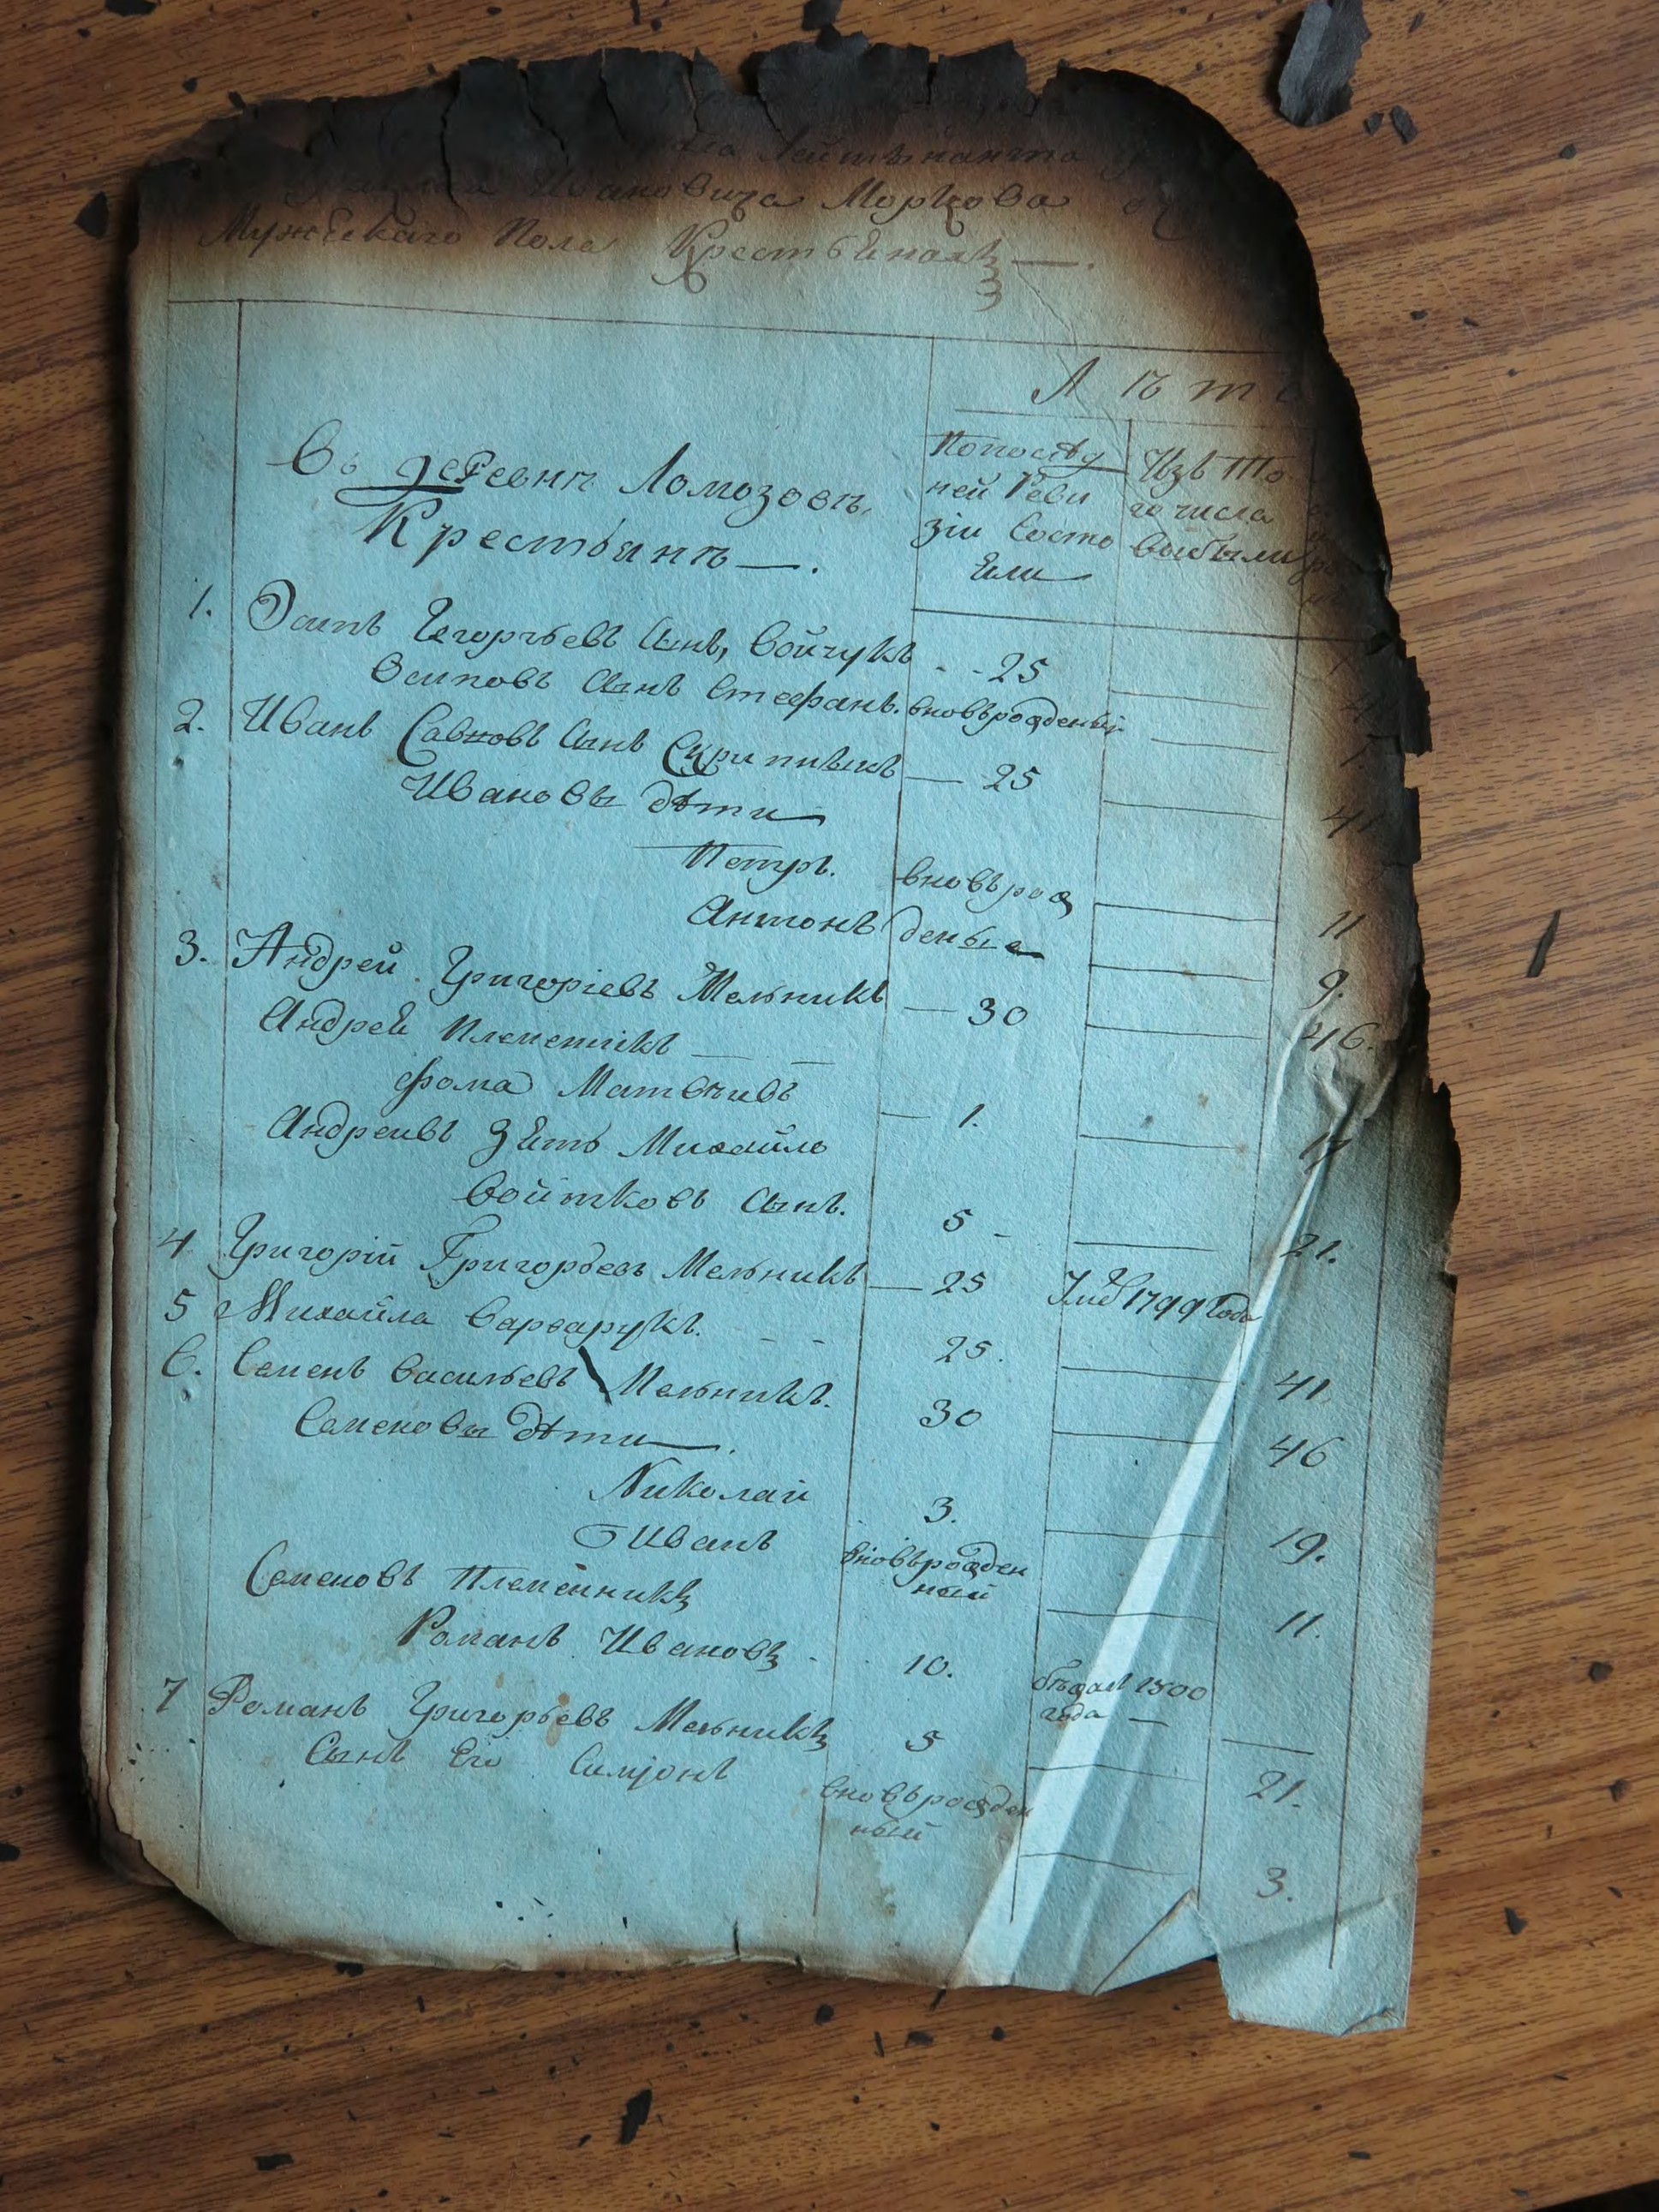 Лейтѣнанта
Ивановича Моркова о
Мужескаго Пола Крестьенахъ —.
Лѣт
Въ деревнѣ Ломозовъ,
Крестьянъ —.
Попослѣд
ней Реви
зіи Состо
Ели
Изъ То
го числа
выбыли
1. Осипъ Егорьевъ Сынъ, Войчукъ - - 25
Осиповъ Сынъ Стефанъ. вновьрожденый 
2. Иванъ Савновъ Сынъ Скрипнѣкъ — 25 41
Ивановы дѣти
Петръ. вновьрож 11
Антонъ деные 9.
3. Андрей Григоріевъ Мельникъ — 30 46.
Андрее Племенікъ — —
Фома Матвѣивъ — 1. 17
Андреивъ Зеть Михайло
Войтковъ Сынъ. 5 - 21.
4 Григорій Григорьевъ Мельникъ — 25 Умеръ 1799 Года
5 Михайла Варварукъ. - - 25. 41
6. Семенъ Васильевъ Мельникъ. 30 46
Семеновы Дѣти —.
Николай 3. 19.
Иванъ вновьрожден
ный 11.
Семеновъ Племенникъ
Романъ Ивановъ - 10. бѣжал 1800
года —
7 Романъ Григорьевъ Мельникъ 5 21.
Сынъ Его Симіонъ вновьрожден
ный 3.